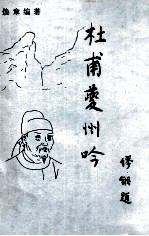 章编著
杜甫夔州吟
缪钺题